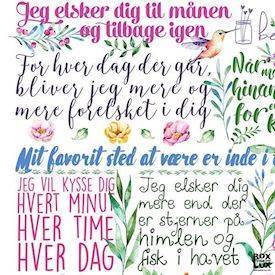 Jeg elsker dig til månen
og tilbage igen
For hver dag der går,
bliver jeg mere og
mere forelsket i dig
Når m
hinan
for k
Mit favorit sted at være er inde i
JEG VIL KYSSE DIG
HVERT MINUT
HVER TIME
HVER DAG
Jeg elsker dig
mere end der
er stjerner på
himlen og
fisk i havet